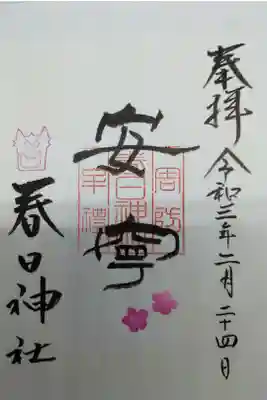 奉拝 令和三年二月二十四日
安寧
周防
春日神
牟禮
春日神社